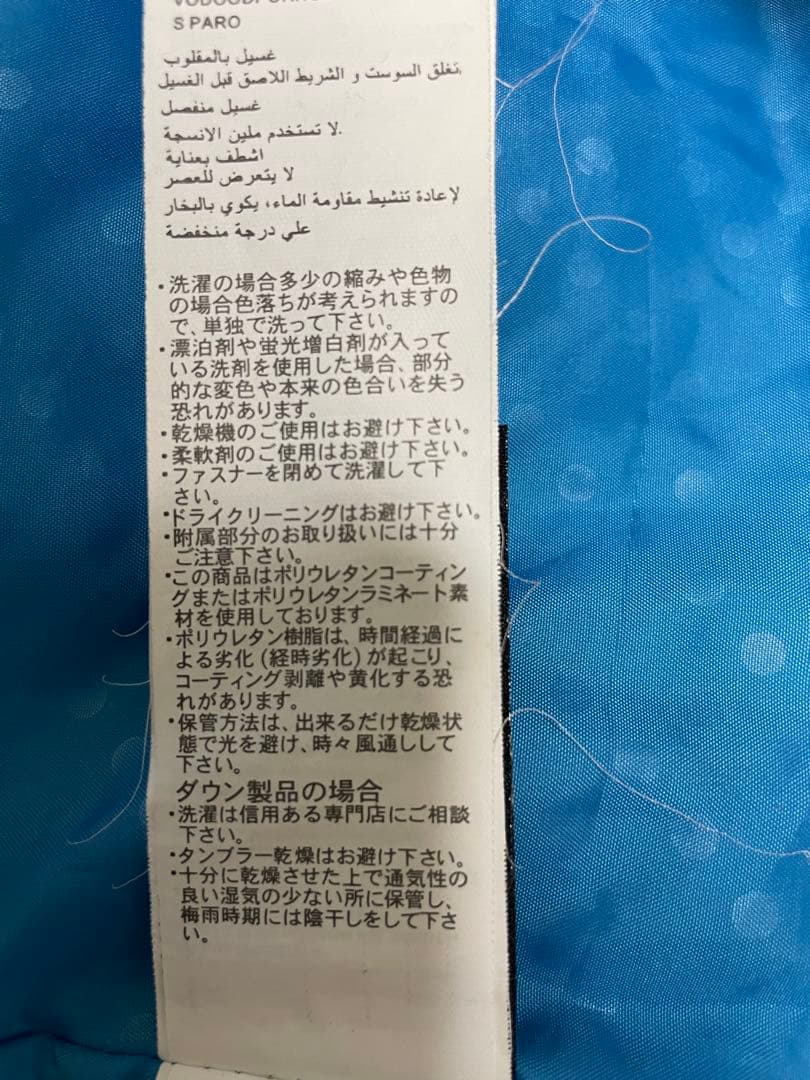 S PARO
غسيل بالمقلوب
تغلق السوست و الشريط اللاصق قبل الغسيل.
غسيل منفصل
لا تستخدم ملين الانسجة.
اشطف بعناية
لا يتعرض للعصر
لإعادة تنشيط مقاومة الماء، يكوي بالبخار
علي درجة منخفضة
・洗濯の場合多少の縮みや色物
の場合色落ちが考えられますの
で、単独で洗って下さい。
・漂泊剤や蛍光増白剤が入って
いる洗剤を使用した場合、部分
的な変色や本来の色合いを失う
恐れがあります。
・乾燥機のご使用はお避け下さい。
・柔軟剤のご使用はお避け下さい。
・ファスナーを閉めて洗濯して下
さい。
・ドライクリーニングはお避け下さい。
・附属部分のお取り扱いには十分
ご注意下さい。
・この商品はポリウレタンコーティン
グまたはポリウレタンラミネート素
材を使用しております。
・ポリウレタン樹脂は、時間経過に
よる劣化 (経時劣化) が起こり、
コーティング剥離や黄化する恐
れがあります。
・保管方法は、出来るだけ乾燥状
態で光を避け、時々風通しして
下さい。
ダウン製品の場合
・洗濯は信用ある専門店にご相談
下さい。
・タンブラー乾燥はお避け下さい。
・十分に乾燥させた上で通気性の
良い湿気の少ない所に保管し、
梅雨時期には陰干しをして下さ
い。